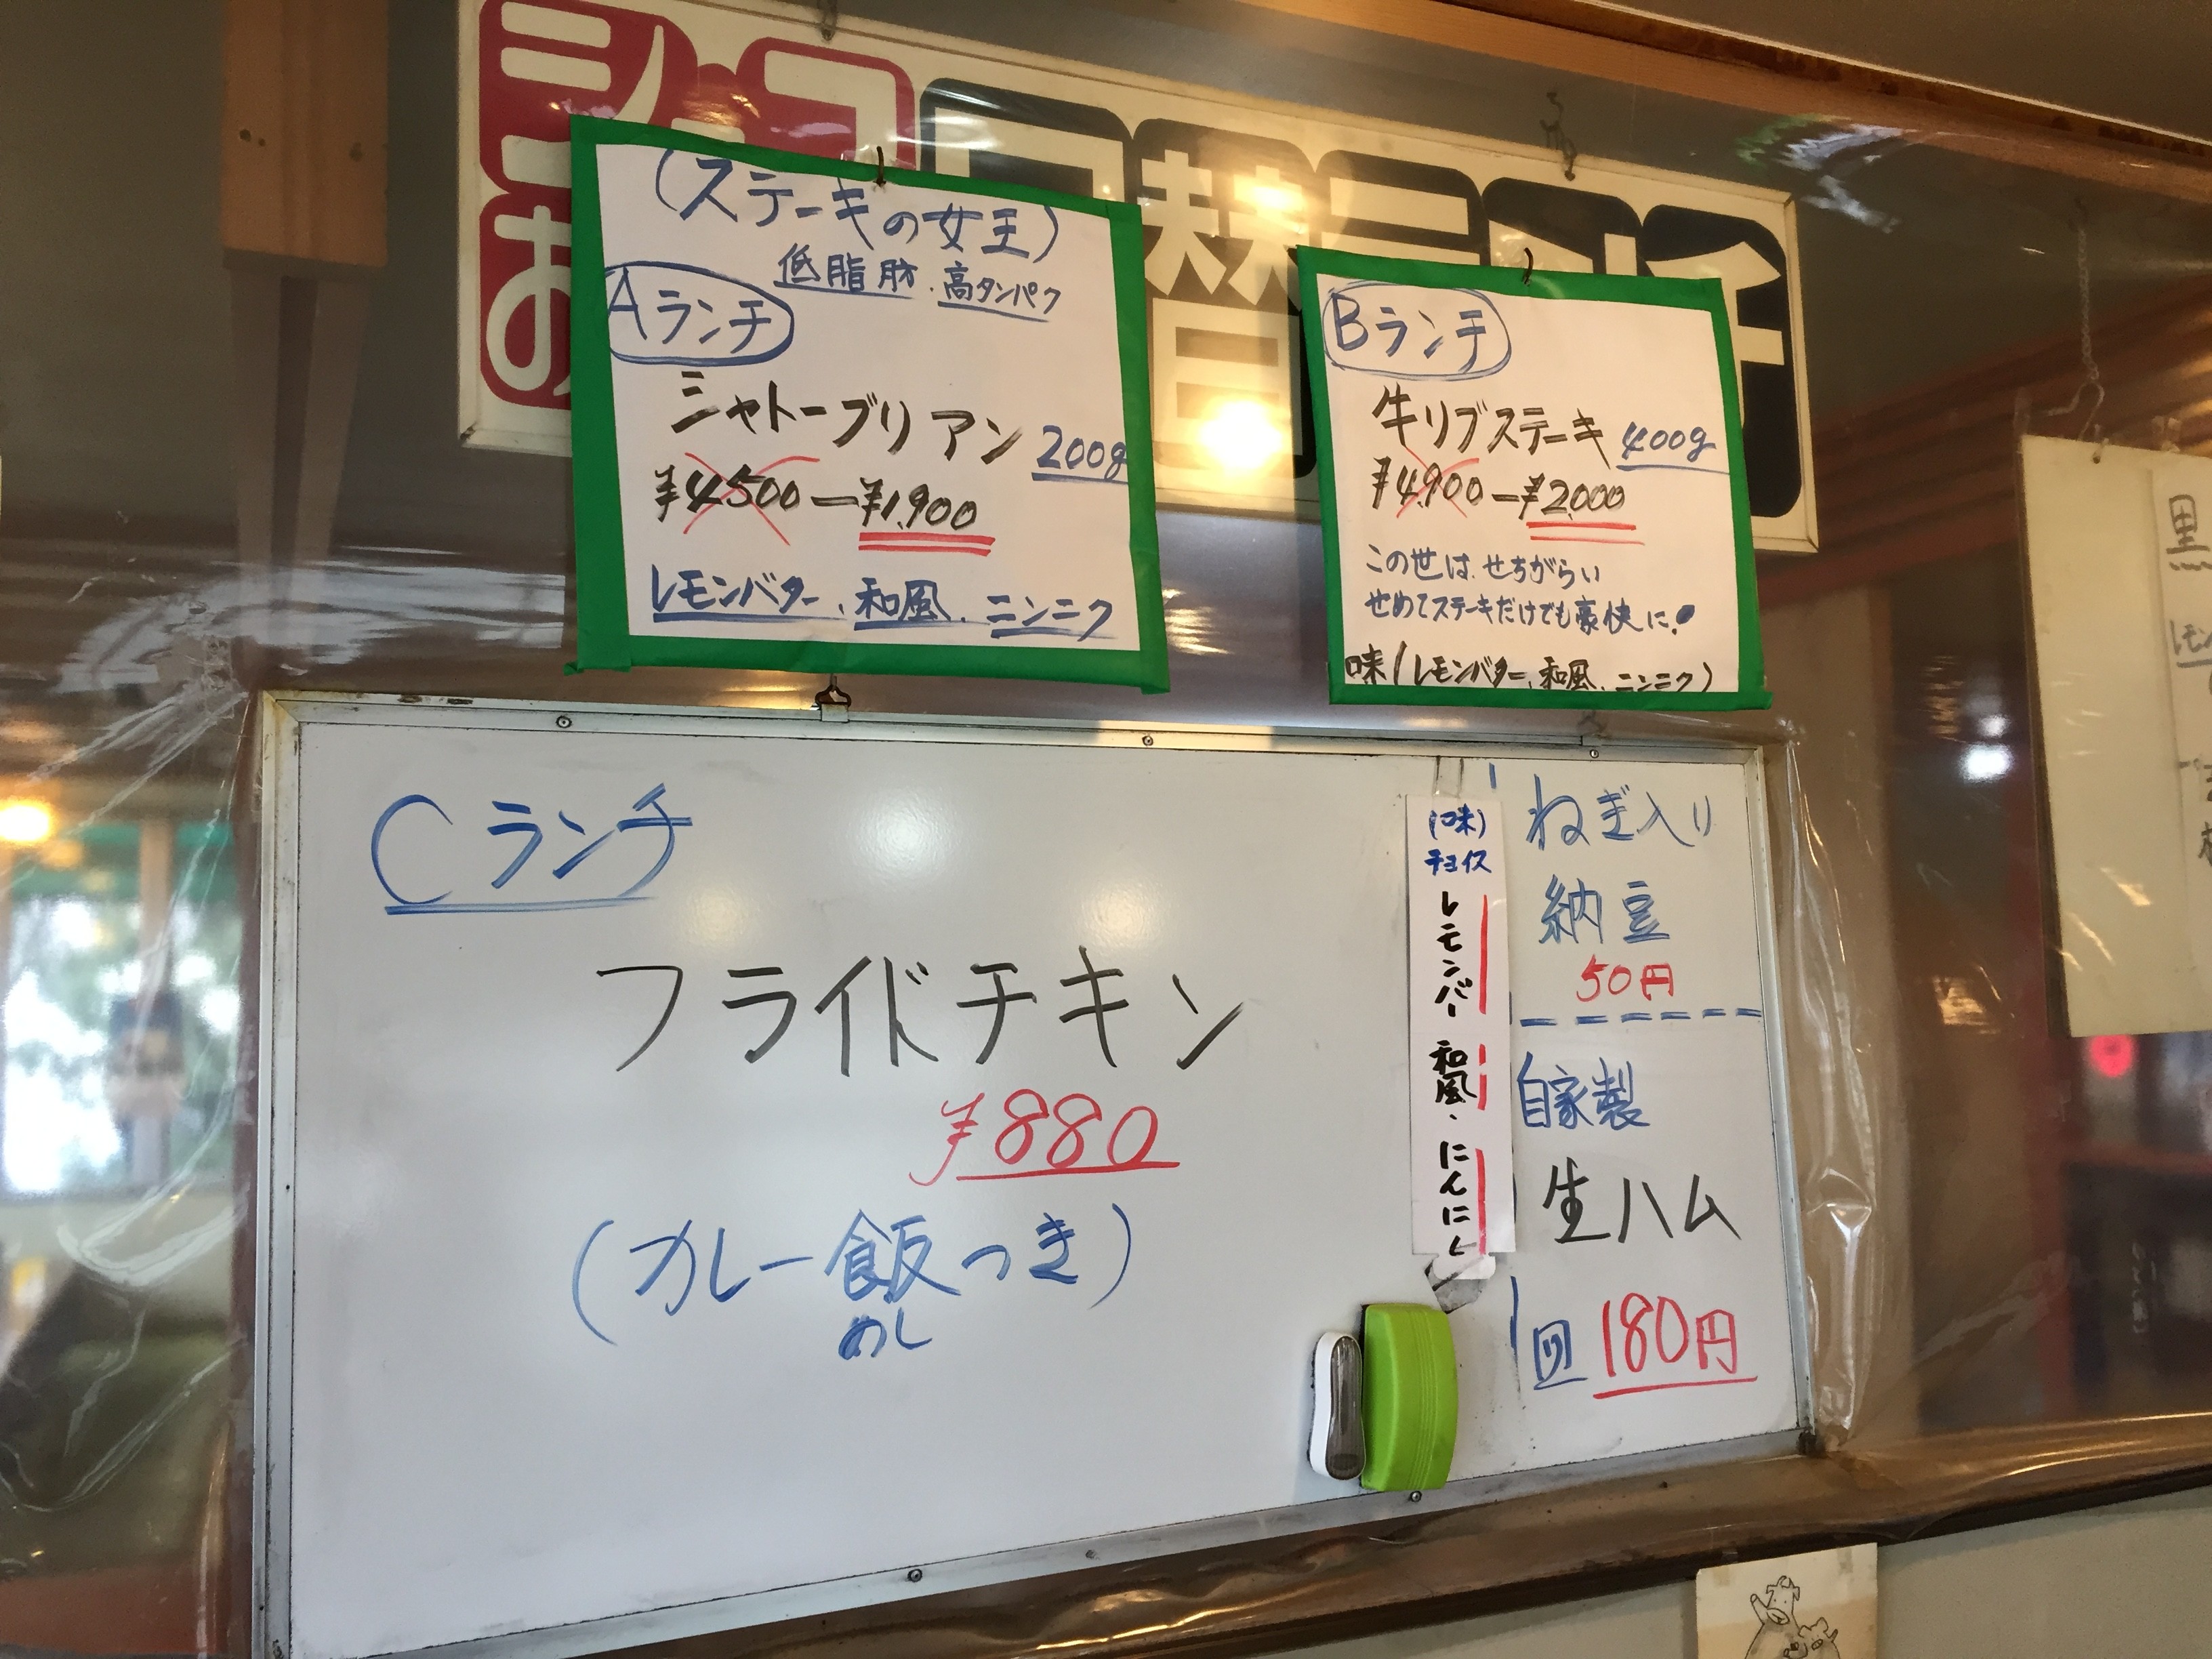 (ステーキの女王)
低脂肪.高タンパク
Aランチ
シャトーブリアン 200g
¥4500—¥1,900
レモンバター、和風、ニンニク
Bランチ
牛リブステーキ 400g
¥4,900—¥2,000
この世は、せちがらい
せめてステーキだけでも豪快に!
味(レモンバター、和風、ニンニク)
Cランチ
フライドチキン
¥880
(カレー飯つき)
めし
(味)
チョイス
レモンバター
和風、
にんにく
ねぎ入り
納豆
50円
自家製
生ハム
180円
替
お
黒
レモン